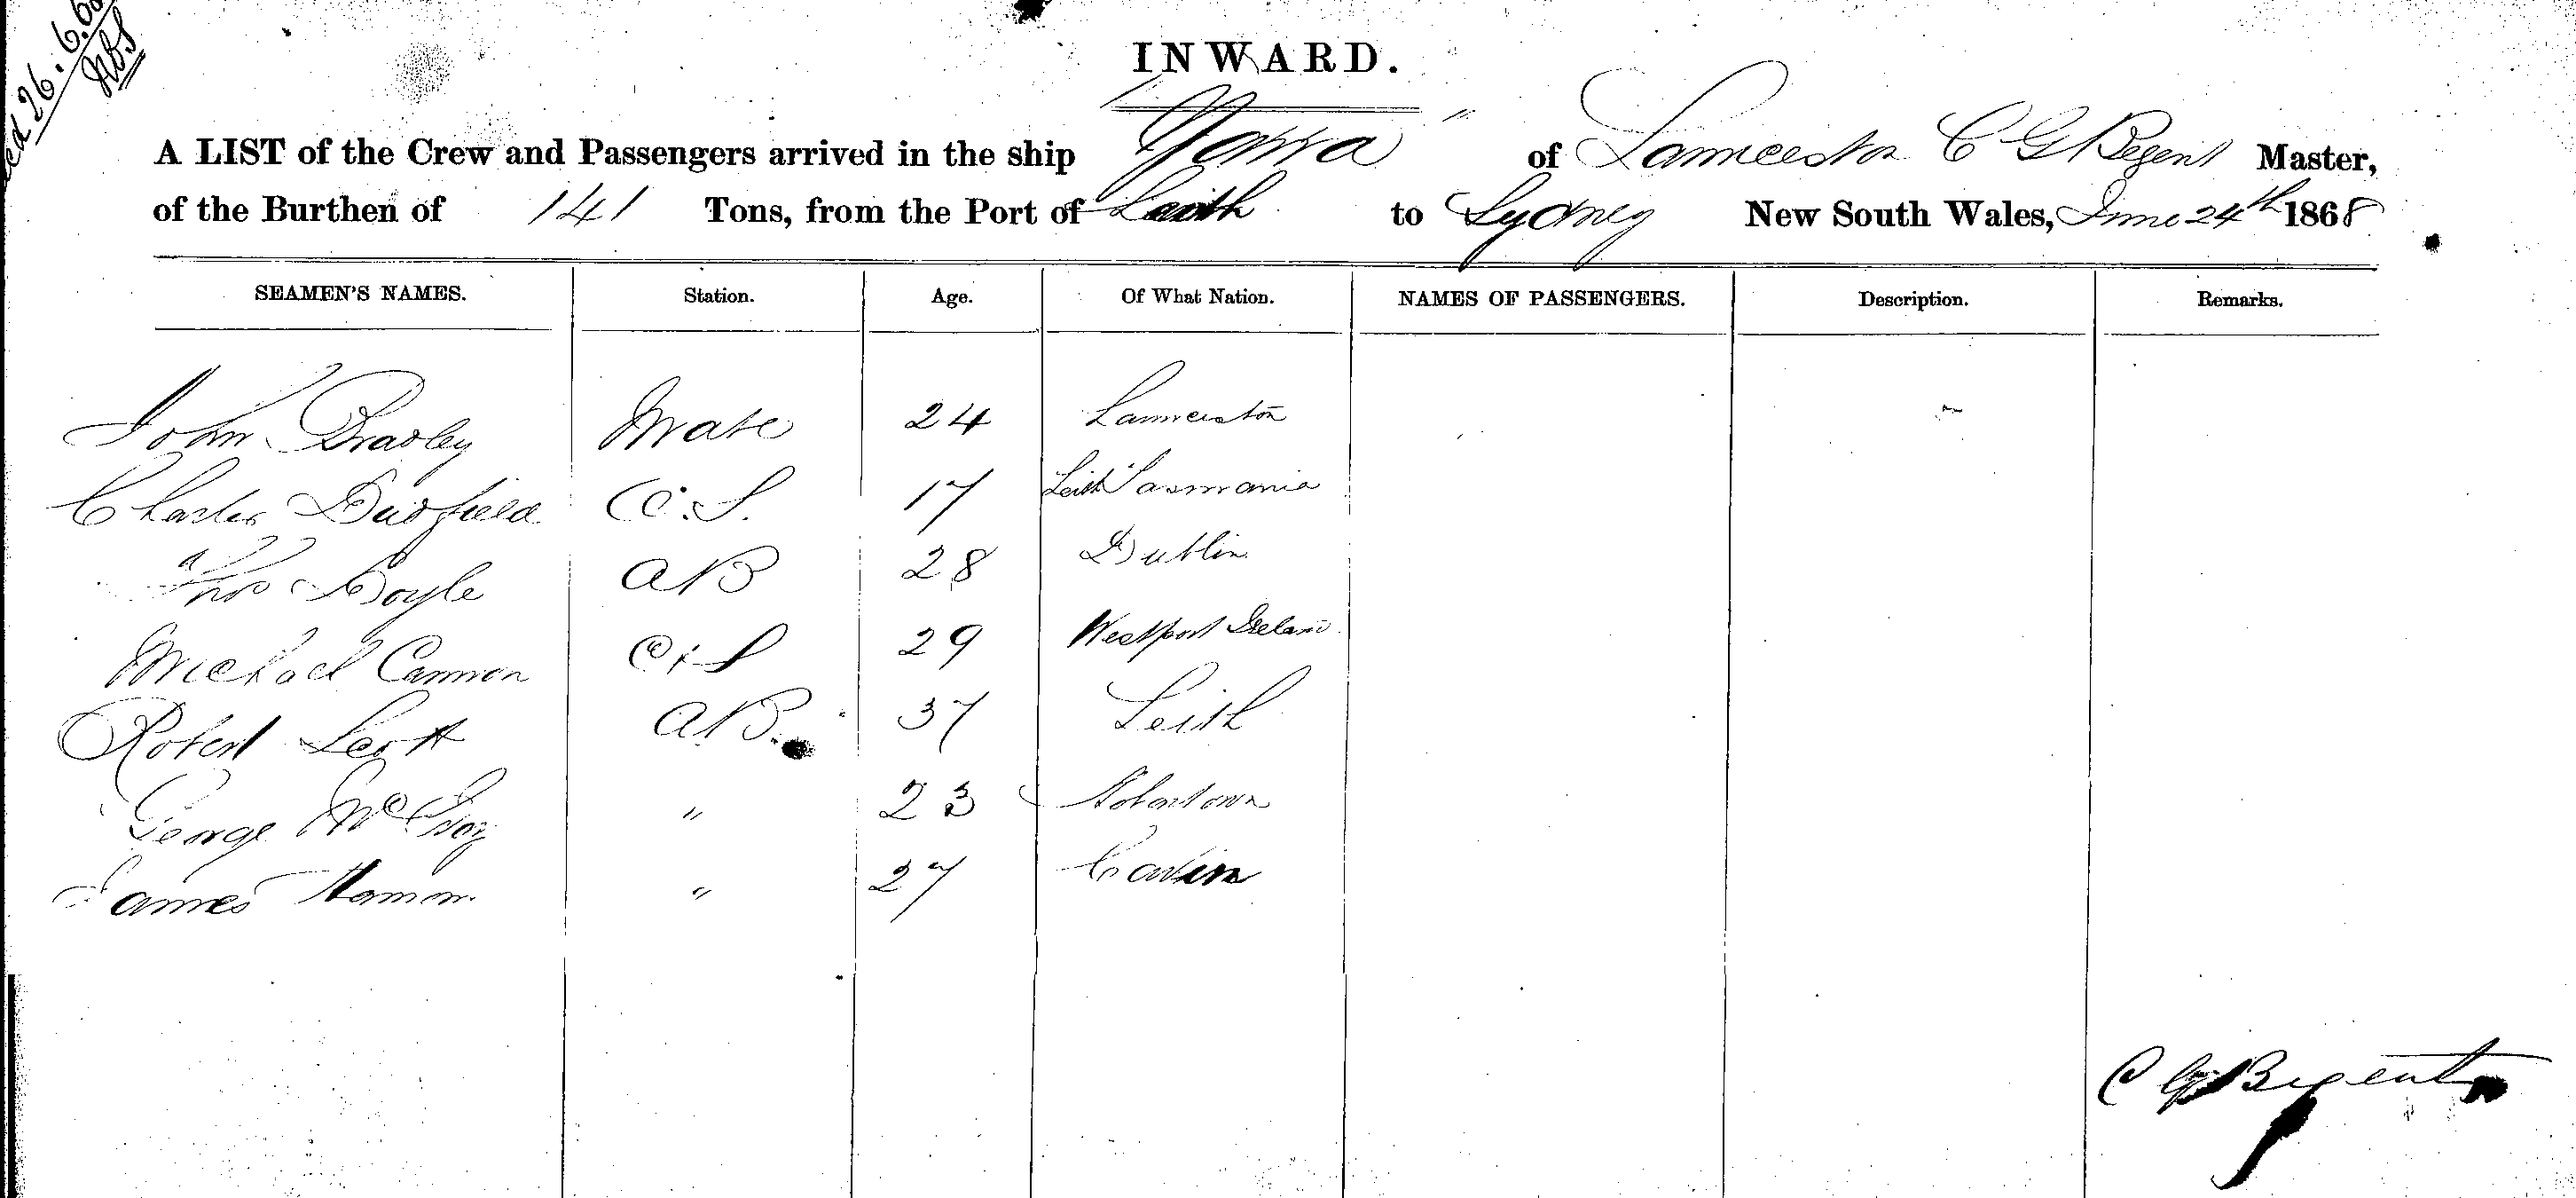 26.6.68
INWARD.
A LIST of the Crew and Passengers arrived in the ship Yarra " of Launceston C G Begent Master,
of the Burthen of 141 Tons, from the Port of Leith to Sydney New South Wales, June 24th 1868
SEAMEN'S NAMES. Station. Age. Of What Nation. NAMES OF PASSENGERS. Description. Remarks.
John Bradley Mate 24 Launceston
Charles Duffield O.S. 17 Leith Tasmania
Thos Doyle AB 28 Dublin
Michael Cannon O.S 29 Westport Ireland
Robert Scott AB. 37 Leith
George " 23 Hobartown
James " 27
C G Begent